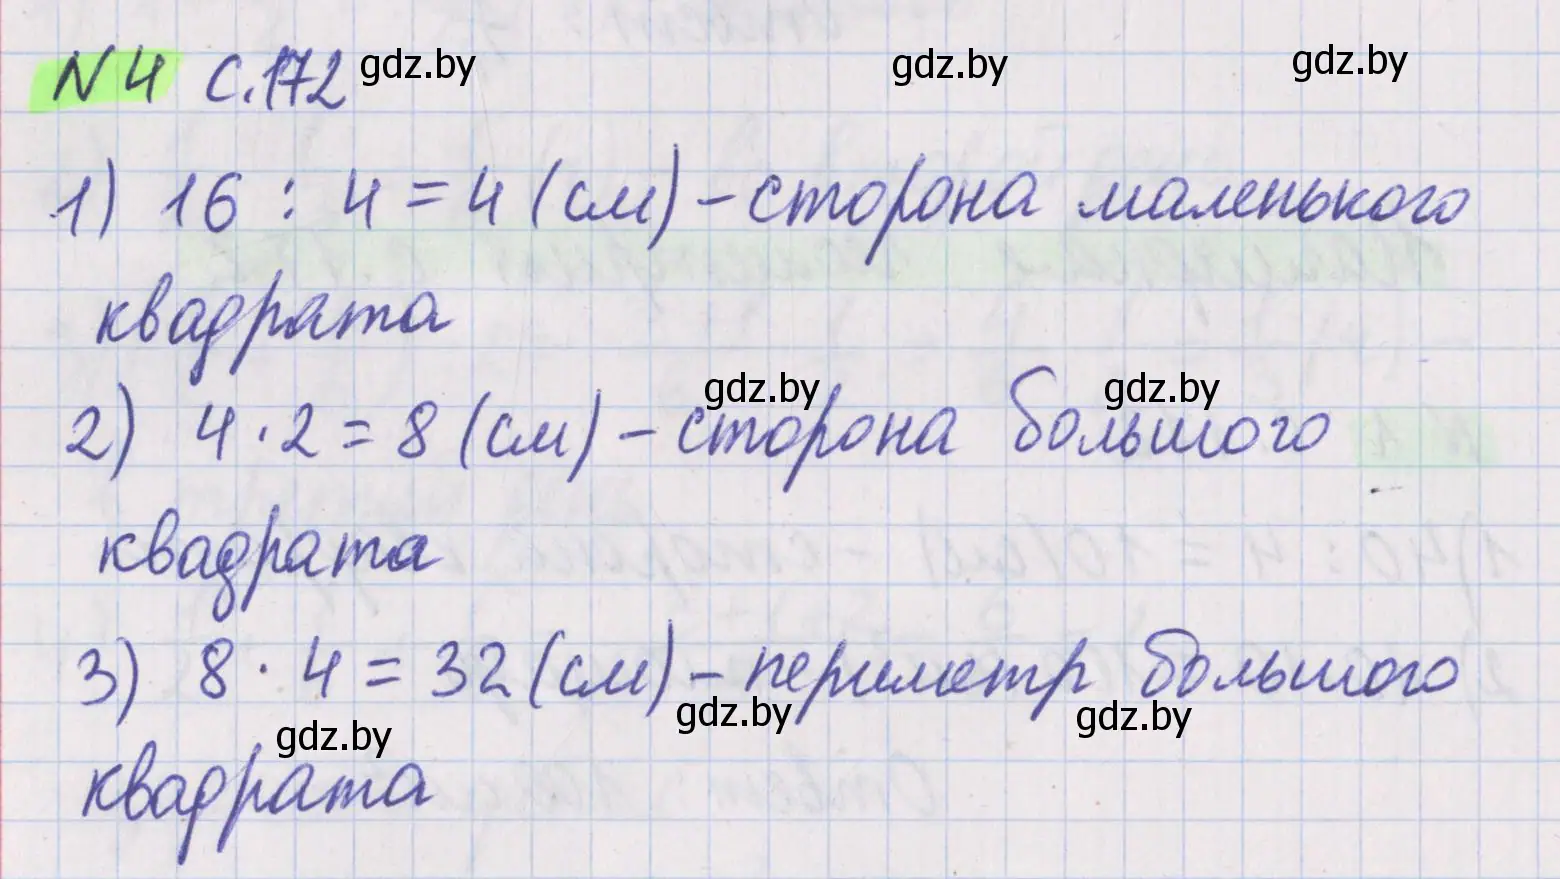 N4 с.172 gdz.by gdz.by gdz.by
1) 16 : 4 = 4 (см) – сторона маленького
квадрата
gdz.by gdz.by
2) 4 · 2 = 8 (см) – сторона большого
квадрата
3) 8 · 4 = 32 (см) – периметр большого
gdz.by gdz.by gdz.by
квадрата